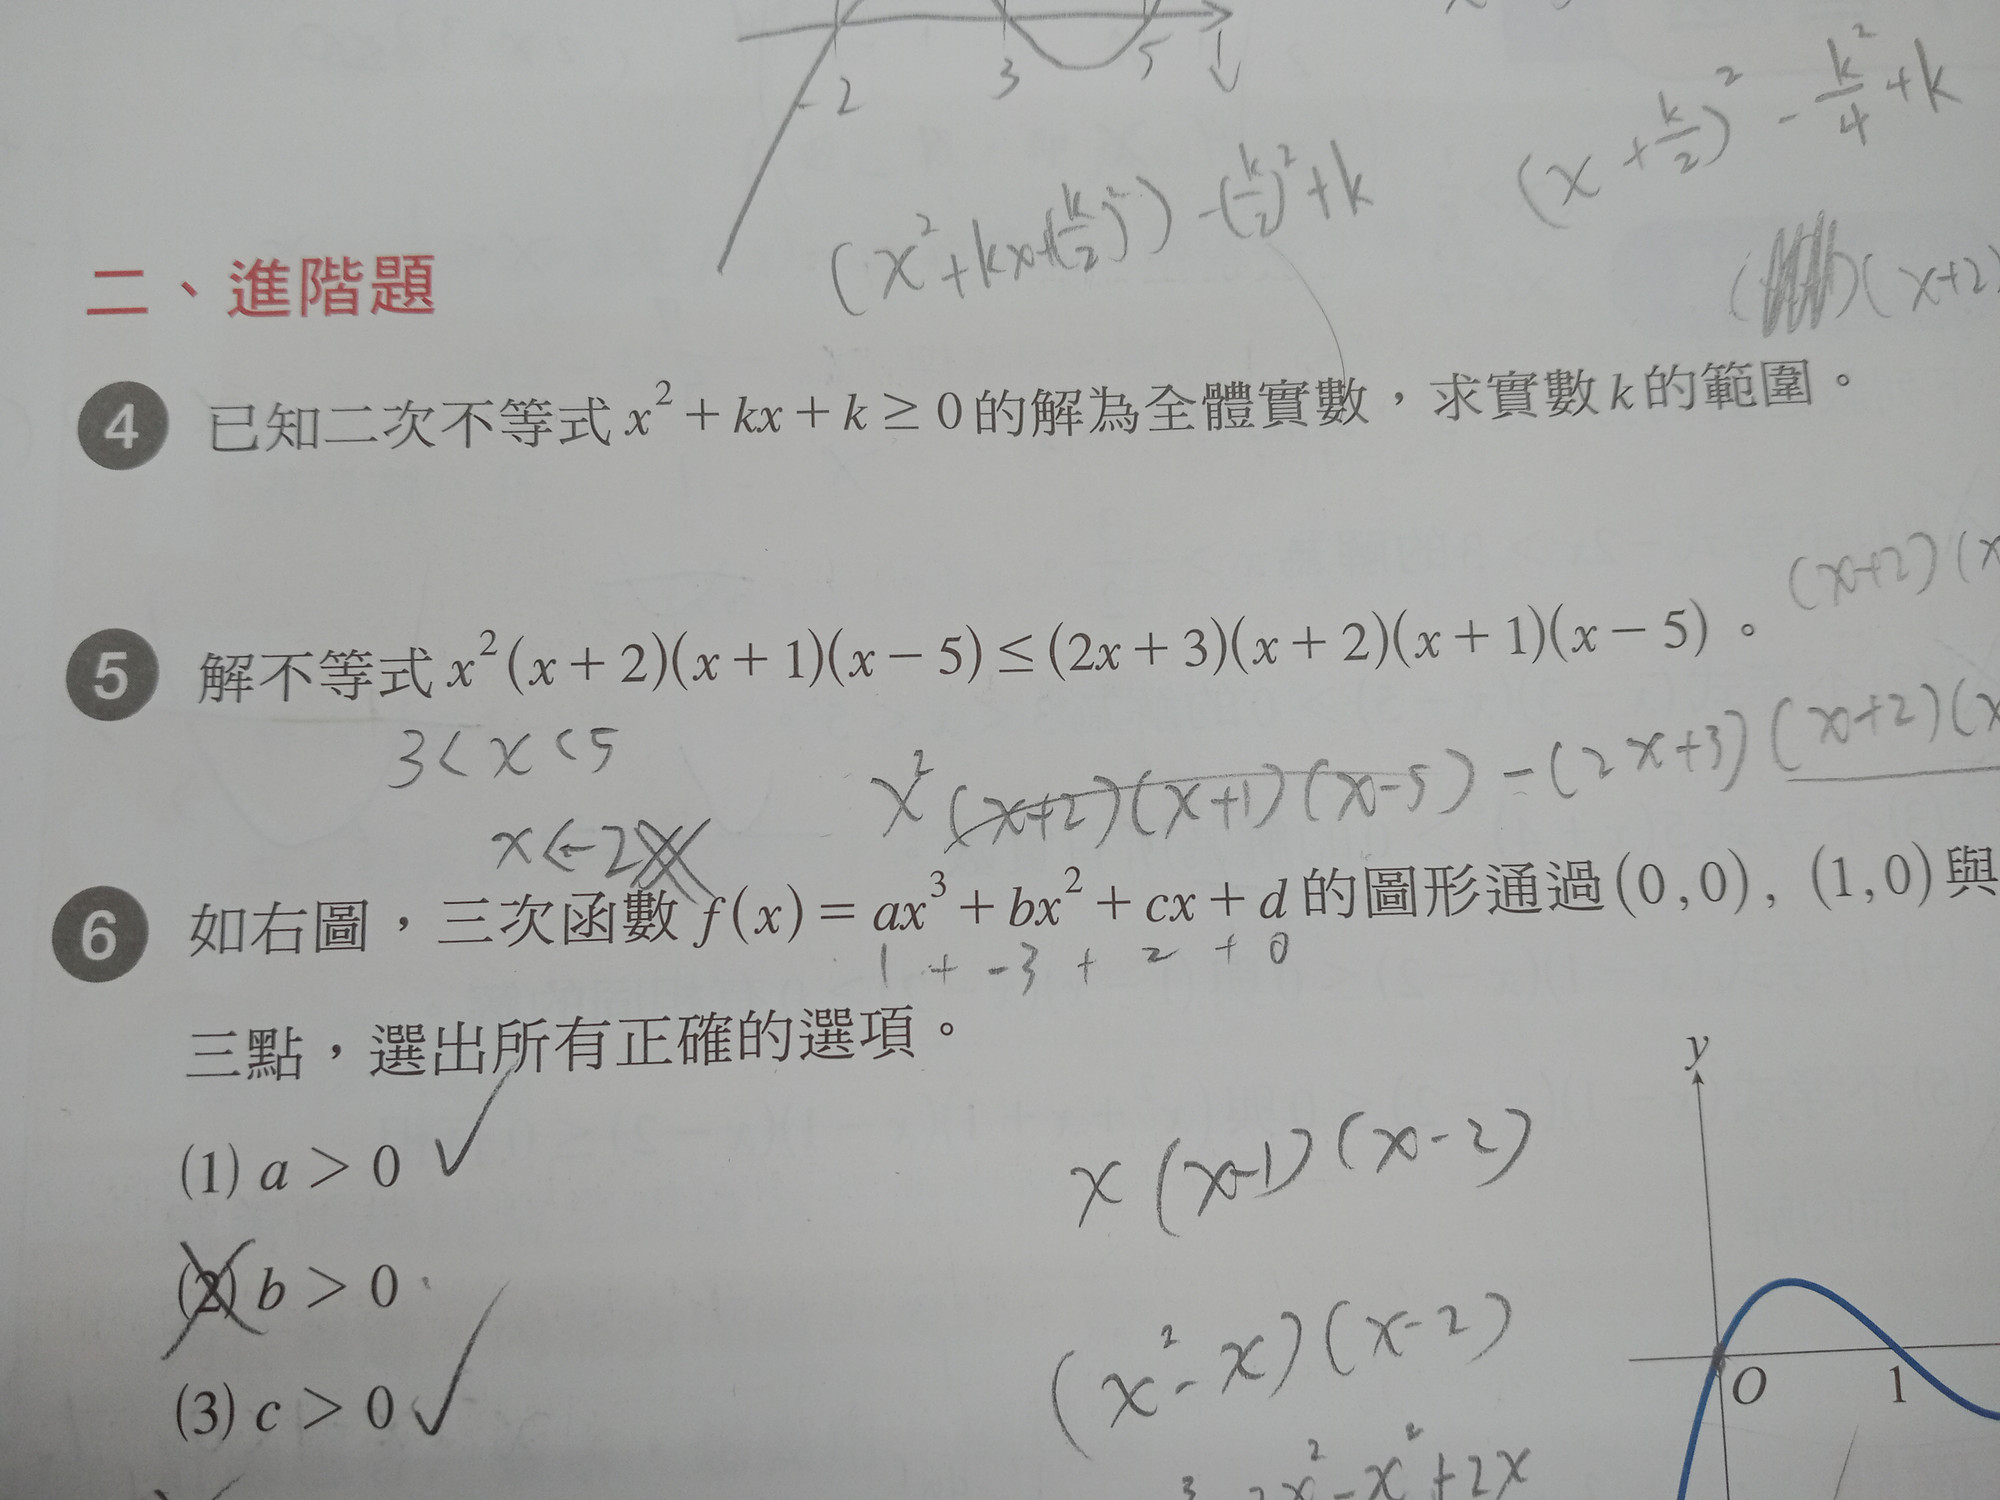 -2 3 5
(x²+kx+(k/2)²) -(k/2)²+k
(x+k/2)² - k²/4 +k
(x+2)
二、進階題
4 已知二次不等式 x² + kx + k ≥ 0 的解為全體實數，求實數 k 的範圍。
(x+2)(x
5 解不等式 x²(x + 2)(x + 1)(x − 5) ≤ (2x + 3)(x + 2)(x + 1)(x − 5)。
3<x<5
x²(x+2)(x+1)(x-5) -(2x+3)(x+2)(x
x<-2
6 如右圖，三次函數 f(x) = ax³ + bx² + cx + d 的圖形通過(0,0), (1,0)與
1 + -3 + 2 + 0
三點，選出所有正確的選項。
(1) a > 0
x(x-1)(x-2)
(2) b > 0
(3) c > 0
(x²-x)(x-2)
y
O 1
-x²+2x